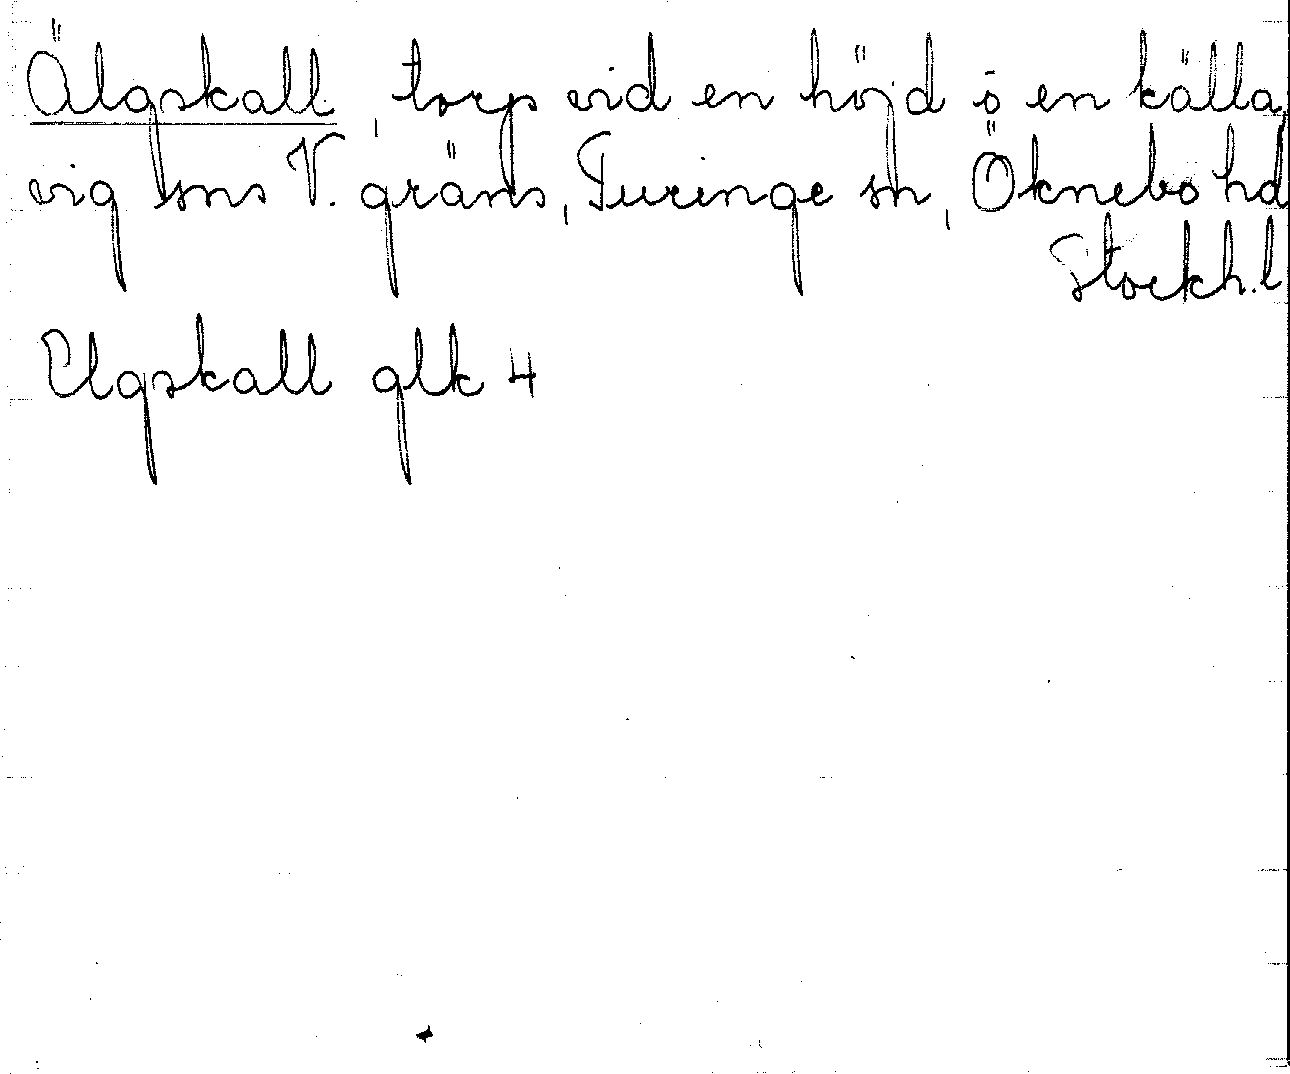 Älgskall, torp vid en höjd o en källa
vig sns V. gräns, Turinge sn, Öknebo hd
Stockh.l
Elgskall glk 4